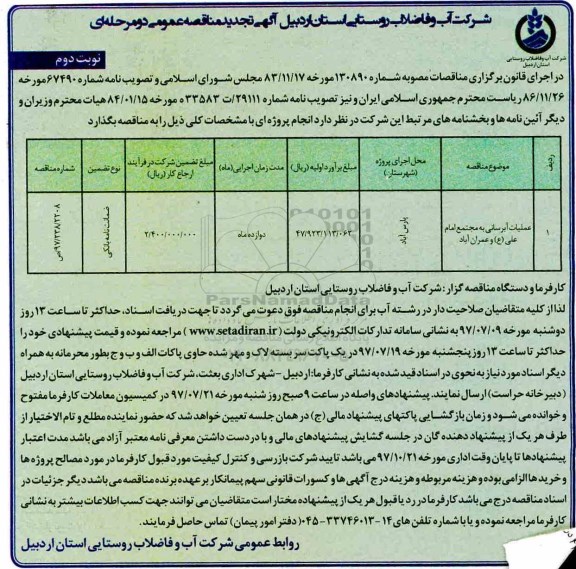 شرکت آب و فاضلاب روستایی استان اردبیل آگهی تجدید مناقصه عمومی دو مرحله‌ای
شرکت آب و فاضلاب روستایی
استان اردبیل
نوبت دوم
در اجرای قانون برگزاری مناقصات مصوبه شماره ۱۳۰۸۹۰ مورخه ۸۳/۱۱/۱۷ مجلس شورای اسلامی و تصویب نامه شماره ۶۷۴۹۰ مورخه
۸۶/۱۱/۲۶ ریاست محترم جمهوری اسلامی ایران و نیز تصویب نامه شماره ۲۹۱۱۱/ت ۳۳۵۸۳ ه مورخه ۸۴/۰۱/۱۵ هیات محترم وزیران و
دیگر آئین نامه ها و بخشنامه های مرتبط این شرکت در نظر دارد انجام پروژه ای با مشخصات کلی ذیل را به مناقصه بگذارد
ردیف
موضوع مناقصه
محل اجرای پروژه (شهرستان:)
مبلغ برآورد اولیه (ریال)
مدت زمان اجرایی (ماه)
مبلغ تضمین شرکت در فرآیند ارجاع کار (ریال)
نوع تضمین
شماره مناقصه
۱
عملیات آبرسانی به مجتمع امام علی (ع) و عمران آباد
پارس آباد
۴۷/۹۲۳/۱۱۳/۰۶۳
دوازده ماه
۲/۴۰۰/۰۰۰/۰۰۰
ضمانت نامه بانکی
ParsNamadData
کارفرما و دستگاه مناقصه گزار: شرکت آب و فاضلاب روستایی استان اردبیل
لذا از کلیه متقاضیان صلاحیت دار در رشته آب برای انجام مناقصه فوق دعوت می گردد تا جهت دریافت اسناد، حداکثر تا ساعت ۱۳ روز
دوشنبه مورخه ۹۷/۰۷/۰۹ به نشانی سامانه تدارکات الکترونیکی دولت (www.setadiran.ir) مراجعه نموده و قیمت پیشنهادی خود را
حداکثر تا ساعت ۱۳ روز پنجشنبه مورخه ۹۷/۰۷/۱۹ در یک پاکت سربسته لاک و مهر شده حاوی پاکات الف و ب و ج بطور محرمانه به همراه
دیگر اسناد مورد نیاز به نحوی در اسناد قید شده به نشانی کارفرما: اردبیل - شهرک اداری بعثت، شرکت آب و فاضلاب روستایی استان اردبیل
(دبیرخانه حراست) ارسال نمایند. پیشنهادهای واصله در ساعت ۹ صبح روز شنبه مورخه ۹۷/۰۷/۲۱ در کمیسیون معاملات کارفرما مفتوح
و خوانده می شود و زمان بازگشایی پاکتهای پیشنهاد مالی (ج) در همان جلسه تعیین خواهد شد که حضور نماینده مطلع و تام الاختیار از
طرف هر یک از پیشنهاد دهنده گان در جلسه گشایش پیشنهادهای مالی و با در دست داشتن معرفی نامه معتبر آزاد می باشد مدت اعتبار
پیشنهادها تا پایان وقت اداری مورخه ۹۷/۱۰/۲۱ می باشد تایید شرکت بازرسی و کنترل کیفیت مورد قبول کارفرما در مورد مصالح پروژه ها
و خریدها الزامی بوده و هزینه مربوطه و هزینه درج آگهی ها و کسورات قانونی سهم پیمانکار بر عهده برنده مناقصه می باشد دیگر جزئیات در
اسناد مناقصه درج می باشد کارفرما در رد یا قبول هر یک از پیشنهادها مختار است متقاضیان می توانند جهت کسب اطلاعات بیشتر به نشانی
کارفرما مراجعه نموده و یا با شماره تلفن های ۱۴-۳۳۷۴۶۰۱۳-۰۴۵ (دفتر امور پیمان) تماس حاصل فرمایند.
روابط عمومی شرکت آب و فاضلاب روستایی استان اردبیل